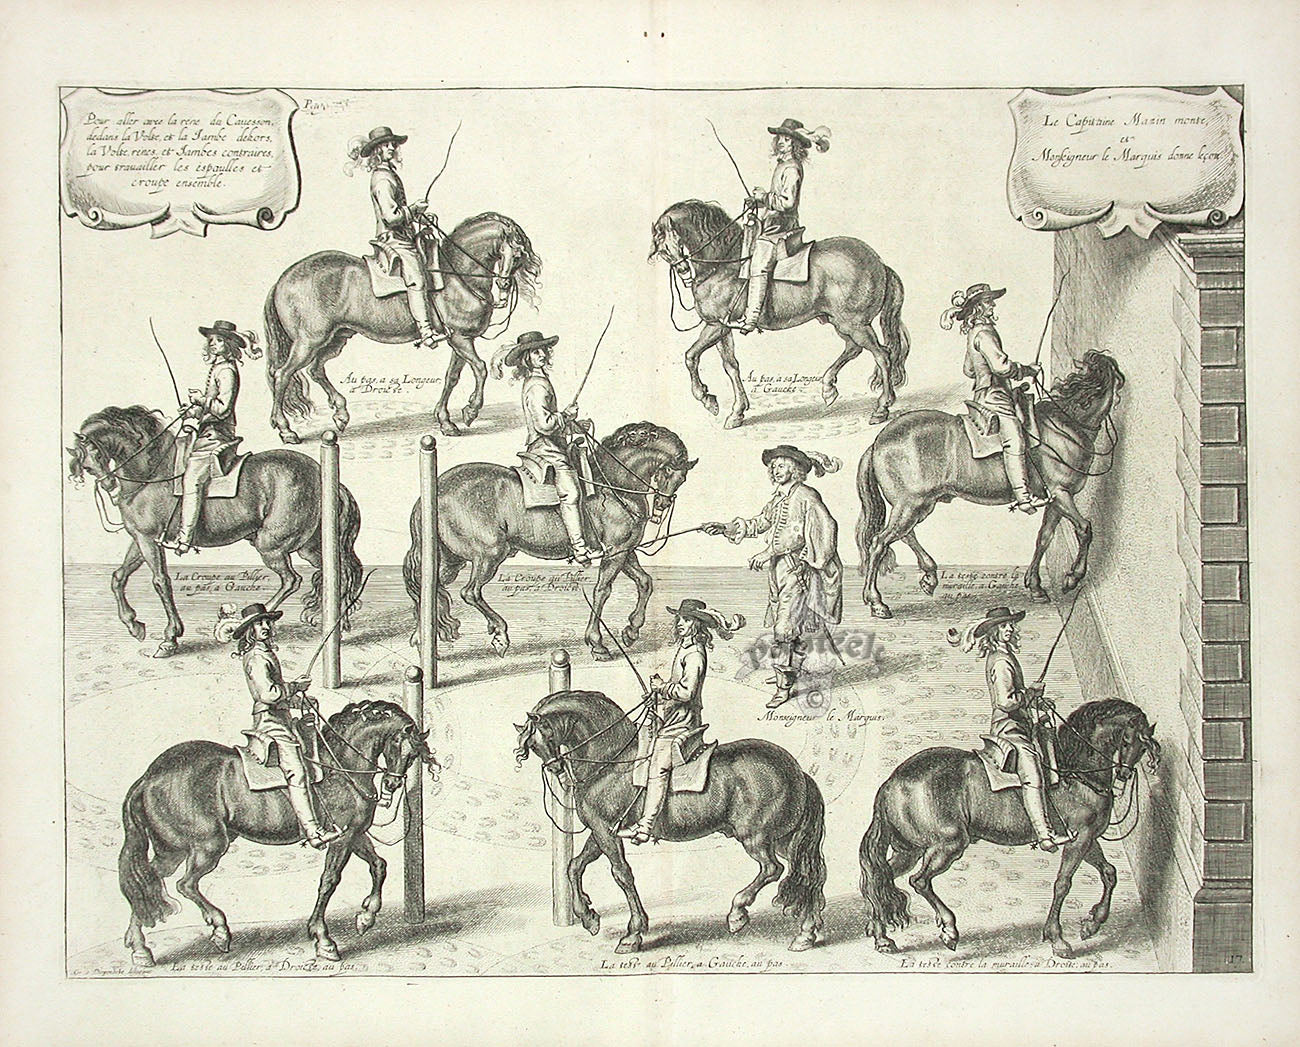 Pour aller avec la rene du Cavesson,
dedans la Volte, et la Jambe dehors,
la Volte, renes, et Jambes contraires,
pour travailler les espaulles et
croupe ensemble.
Le Capitaine Mazin monte,
et
Monseigneur le Marquis donne leçon
Au pas, a sa Longeur,
a Droicte.
Au pas, a sa Longeur
a Gaucke
La Croupe au Pillier,
au pas, a Gaucke
La Croupe au Pillier
au pas, a Droicte
La teste contre la
muraille, a Gaucke
au pas
Monseigneur le Marquis.
La teste au Pillier, a Droicte, au pas.
La teste au Pillier, a Gaucke, au pas
La teste contre la muraille, a Droite, au pas.
17
panteek
©